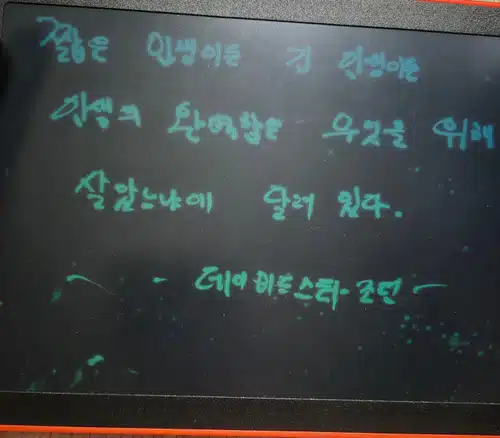 짧은 인생이든 긴 인생이든
인생의 완벽함은 무엇을 위해
살았느냐에 달려 있다.
- 데이비드 스타 조던 -